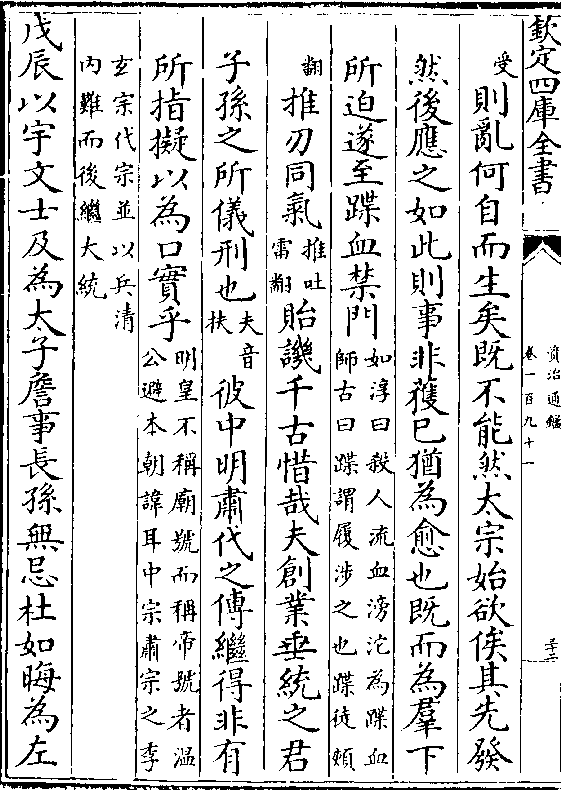 欽定四庫全書
資治通鑑
卷一百九十一
受則亂何自而生矣既不能然太宗始欲俟其先發
然後應之如此則事非獲已猶為愈也既而為羣下
所迫遂至蹀血禁門如淳曰殺人流血滂沱為蹀血
師古曰蹀謂履涉之也蹀徒頰
翻推刃同氣推吐
雷翻貽譏千古惜哉夫創業垂統之君
子孫之所儀刑也夫音
扶彼中明肅代之傳繼得非有
所指擬以為口實乎明皇不稱廟號而稱帝號者溫
公避本朝諱耳中宗肅宗之季
玄宗代宗並以兵清
内難而後繼大統
戊辰以宇文士及為太子詹事長孫無忌杜如晦為左